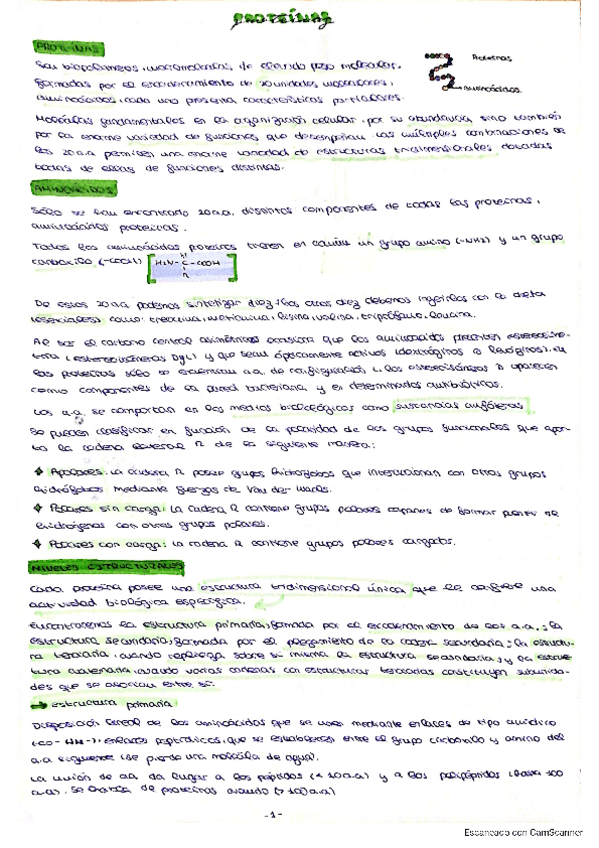 PROTEÍNAS
PROTEÍNAS
Son biopolímeros, macromoléculas de elevado peso molecular,
formadas por el encadenamiento de 20 unidades monoméricas,
aminoácidos, cada uno presenta características particulares.
Proteínas
aminoácidos
Moléculas fundamentales en la organización celular, por su abundancia, sino también
por la enorme variedad de funciones que desempeñan. Las múltiples combinaciones de
los 20 a.a permiten una enorme variedad de estructuras tridimensionales dotadas
todas de ellas de funciones distintas.
AMINOÁCIDOS
Sólo se han encontrado 20 a.a. distintos componentes de todas las proteínas,
aminoácidos proteicos.
Todos los aminoácidos proteicos tienen en común un grupo amino (-NH2) y un grupo
carboxilo (-COOH)
H
H2N-C-COOH
R
De estos 20 a.a podemos sintetizar diez, los otros diez debemos ingerirlos con la dieta
(esenciales) como: treonina, metionina, lisina, valina, triptófano, leucina.
Al ser el carbono central asimétrico ocasiona que los aminoácidos presenten estereoisome-
ría (estereoisómeros D y L) y que sean ópticamente activos (dextrógiros o levógiros). En
las proteínas sólo se encuentran a.a. de configuración L. los estereoisómeros D aparecen
como componentes de la pared bacteriana y en determinados antibióticos.
Los a.a. se comportan en los medios biológicos como sustancias anfóteras
Se pueden clasificar en función de la polaridad de los grupos funcionales que apor-
ta la cadena lateral R de la siguiente manera:
Apolares: La cadena R posee grupos hidrófobos que interaccionan con otros grupos
hidrófobos mediante fuerzas de Van der-Waals.
Polares sin carga: La cadena R contiene grupos polares capaces de formar puentes de
hidrógenos con otros grupos polares.
Polares con carga: La cadena R contiene grupos polares cargados.
NIVELES ESTRUCTURALES
Cada proteína posee una estructura tridimensional única que le confiere una
actividad biológica específica.
Encontramos la estructura primaria, formada por el encadenamiento de los a.a.; la
estructura secundaria, formada por el plegamiento de la cadena secundaria; la estructu-
ra terciaria, cuando repliega sobre sí misma la estructura secundaria; y la estruc-
tura cuaternaria, cuando varias cadenas con estructuras terciarias constituyen subunida-
des que se asocian entre sí.
estructura primaria:
Disposición lineal de los aminoácidos que se unen mediante enlaces de tipo amídico
(-CO-NH-), enlaces peptídicos, que se establecen entre el grupo carboxilo y amino del
a.a siguiente (se pierde una molécula de agua).
La unión de a.a. da lugar a los péptidos (< 10 a.a) y a los polipéptidos (hasta 100
a.a). Se habla de proteínas cuando (> 100 a.a)
-1-
Escaneado con CamScanner